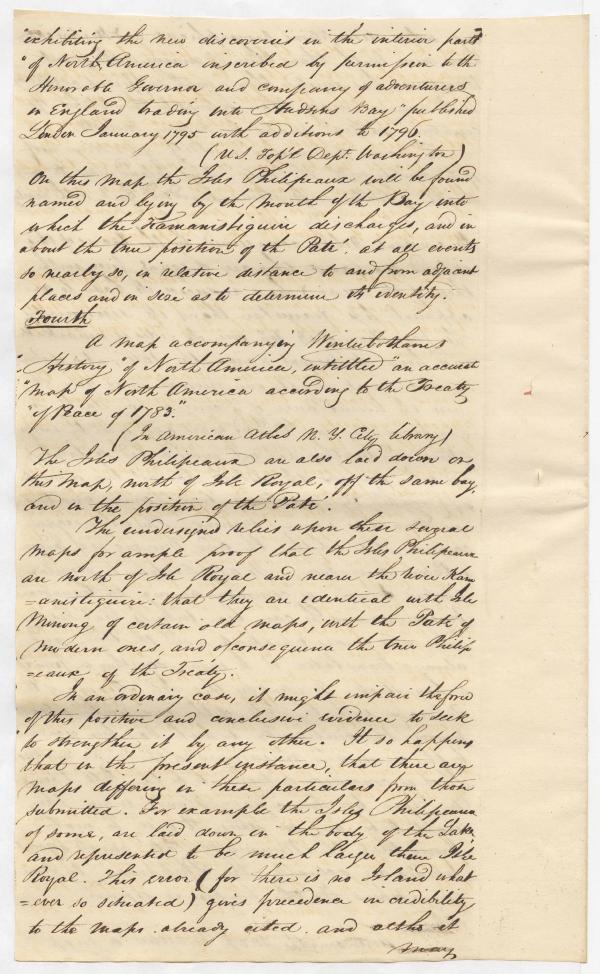 "exhibiting the new discoveries in the interior parts
"of North America inscribed by permission to the
Honorable Governor and company of adventurers
in England trading into Hudsons Bay" published
London January 1795 with additions to 1796.
(U.S. Top'l Dept. Washington)
On this map the Isles Philipeaux will be found
named and lying by the mouth of the Bay into
which the Kamanistiguire discharges, and in
about the true position of the Paté. at all events
so nearly so, in relative distance to and from adjacent
places and in size as to determine its identity.
Fourth
A map accompanying Winterbothams
"History" of North America, intittled "an accurate
"map of North America according to the Treaty
"of Peace of 1783."
(In American Atlas N. Y. City Library)
The Isles Philipeaux are also laid down on
this map, north of Isle Royal, off the same bay,
and in the position of the Paté.
The undersigned relies upon these several
maps for ample proof that the Isles Philipeaux
are north of Isle Royal and near the river Kam
=anistiguire: that they are identical with Isle
Minong of certain old maps, with the Paté of
modern ones, and of consequence the true Philip
=eaux of the Treaty.
In an ordinary case, it might impair the force
of this positive and conclusive evidence to seek
to strengthen it by any other. It so happens
that in the present instance, that there are
maps differing in these particulars from those
submitted. For example the Isles Philipeaux
of some, are laid down in the body of the Lake
and represented to be much larger than Isle
Royal. This error (for there is no Island what
=ever so situated) gives precedence in credibility
to the maps already cited. and altho it
may